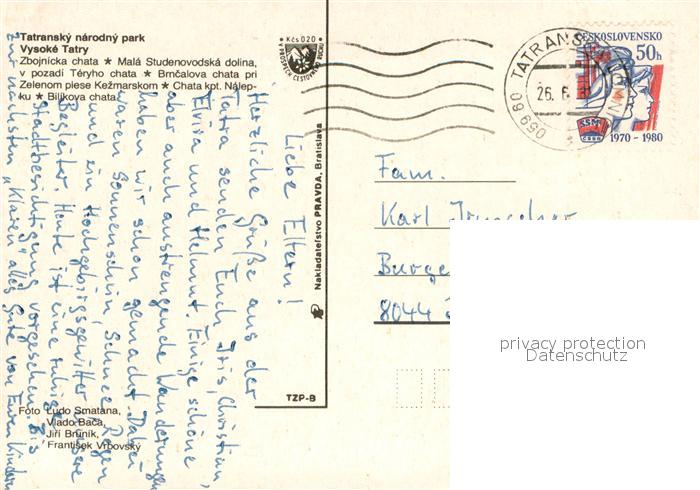 Tatranský národný park
Vysoké Tatry
Zbojnícka chata ★ Malá Studenovodská dolina,
v pozadí Téryho chata ★ Brnčalova chata pri
Zelenom plese Kežmarskom ★ Chata kpt. Nálep-
ku ★ Bilíkova chata
Kčs 020
Liebe Eltern!
Herzliche Grüße aus der
Tatra senden Euch Iris, Christian,
Elvira und Helmut. Einige schöne
aber auch anstrengende Wanderungen
haben wir schon gemacht. Dabei
waren Sonnenschein, Schnee, Regen
und ein Hochgebirgsgewitter unsere
Begleiter. Heute ist eine ruhige
Stadtbesichtigung vorgesehen. Bis
zur nächsten „Klaren" alles Gute von Euren Kindern
Foto Ľudo Smatana,
Vlado Bača,
Jiří Bruník,
František Vrbovský
Nakladateľstvo PRAVDA, Bratislava
TZP-B
ČESKOSLOVENSKO
50h
SSM
ČSSR
1970 - 1980
059 60 TATRANS
26. 6. 8
Fam.
Karl
Burge
8044
privacy protection
Datenschutz